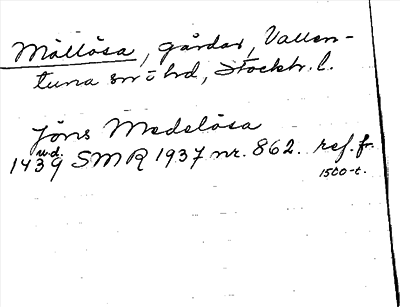 Mällösa, gårdar, Vallen-
tuna sn o hd, Stockh. l.
Jöns Medelösa
u.d.
1439 SMR 1937 nr. 862. ref. fr.
1500-t.